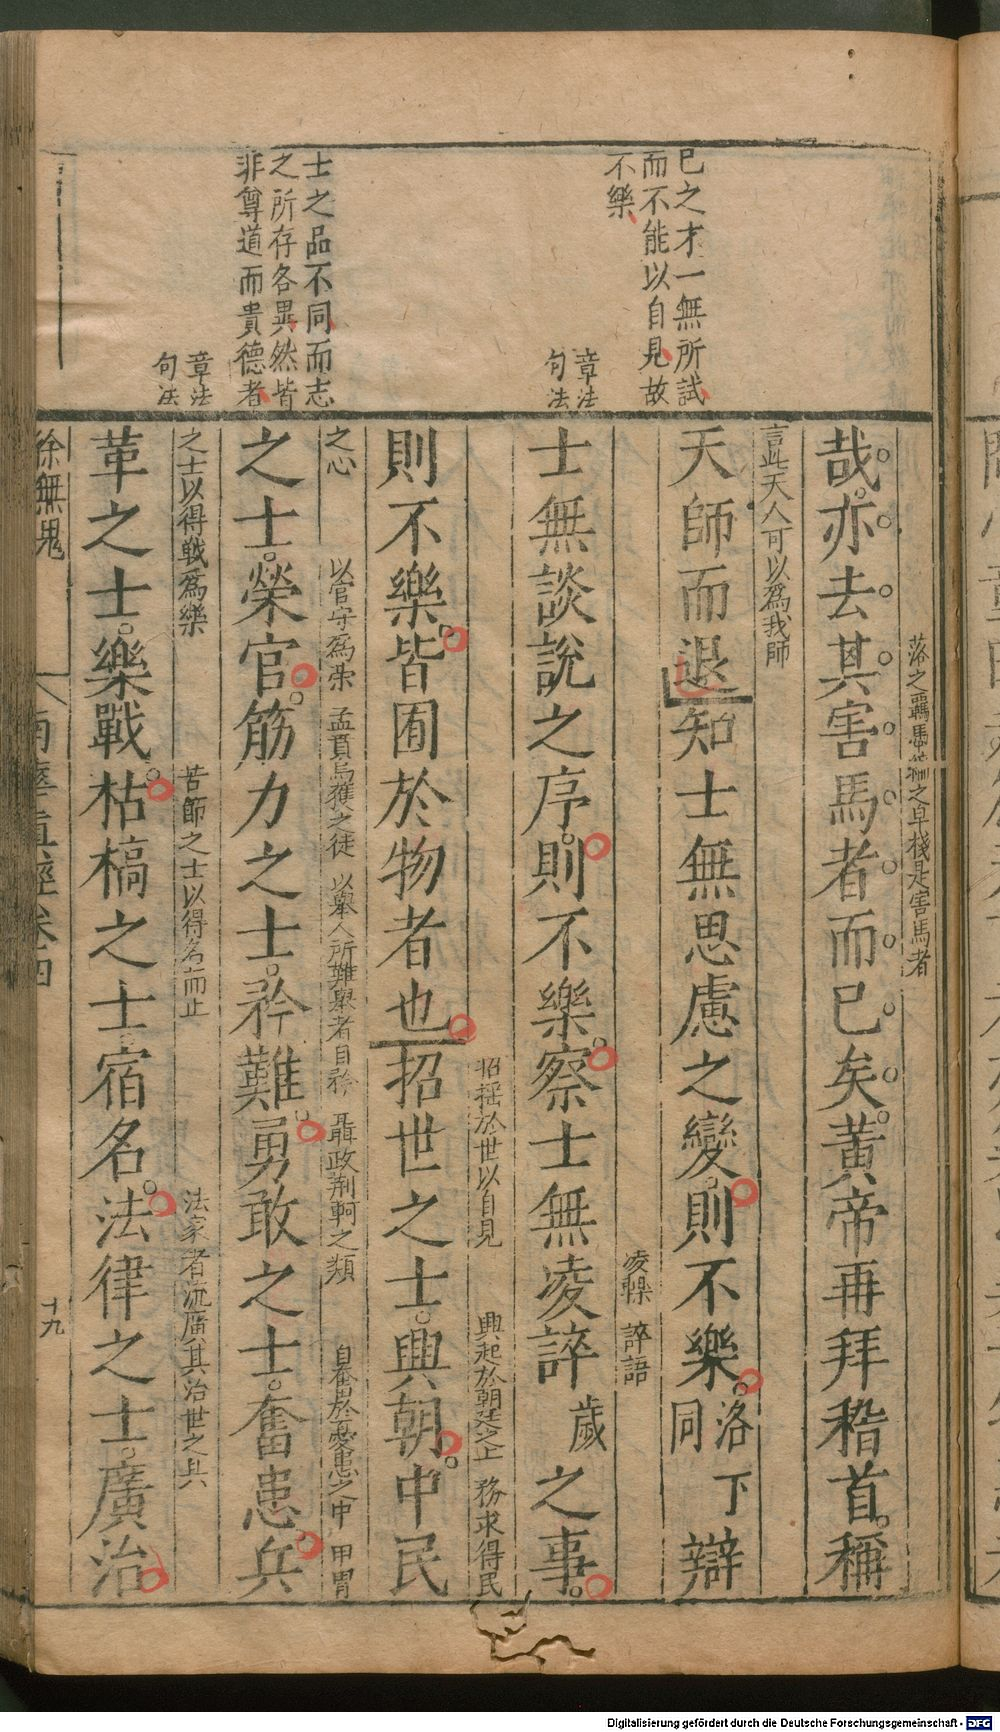 已之才一無所試
而不能以自見故
不樂
章法
句法
士之品不同而志
之所存各異然皆
非尊道而貴德者
章法
句法
落之羈馬編之皁棧是害馬者
哉亦去其害馬者而已矣黃帝再拜稽首稱
言此天人可以爲我師
天師而退知士無思慮之變則不樂洛下同辯
凌轢 誶語
士無談說之序則不樂察士無凌誶歲之事
招搖於世以自見 興起於朝廷之上 務求得民
則不樂皆囿於物者也招世之士興朝中民
之心 以官守爲榮 孟賁烏獲之徒 以舉人所難舉者自矜 聶政荆軻之類 自奮於憂患之中 甲冑
之士榮官筋力之士矜難勇敢之士奮患兵
之士以得戰爲樂 苦節之士以得名而止 法家者流廣其治世之具
革之士樂戰枯槁之士宿名法律之士廣治
徐無鬼 南華真經卷四 十九
Digitalisierung gefördert durch die Deutsche Forschungsgemeinschaft - DFG